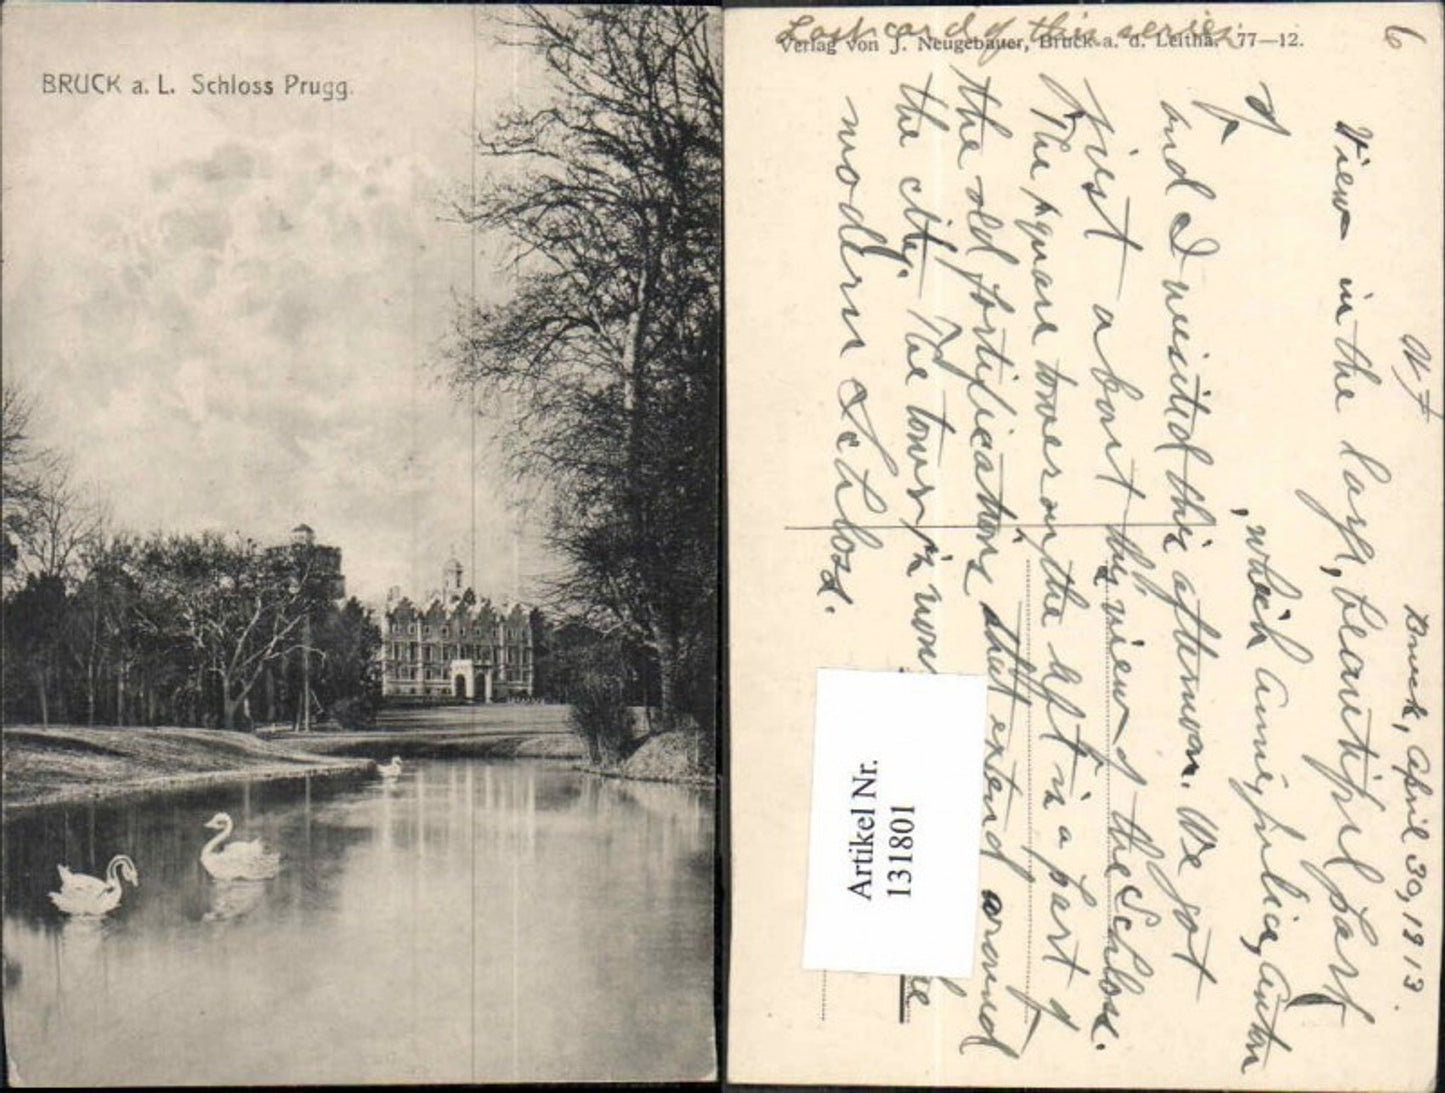 BRUCK a. L. Schloss Prugg.
Last card of this series.
Verlag von J. Neugebauer, Bruck a. d. Leitha. 77—12.
6
Bruck, April 30, 1913.
View in the large, beautiful park
of, which Anne, Julia, Anton
and I visited this afternoon. We got
just about this view of the Schloss.
The square tower on the left is a part of
the old fortifications that extend around
the city. The tower is
modern Schloss.
Artikel Nr.
131801